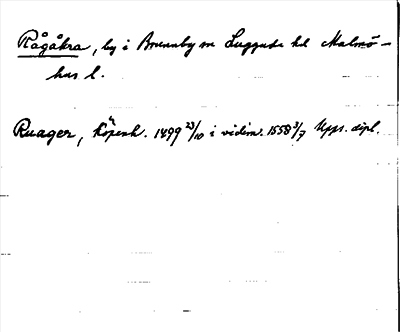 Rågåkra, by i Brunnby sn Luggude hd Malmö-
hus l.
Ruager, Köpenh. 1499 23/10 i vidim. 1558 3/7 Upps. dipl.